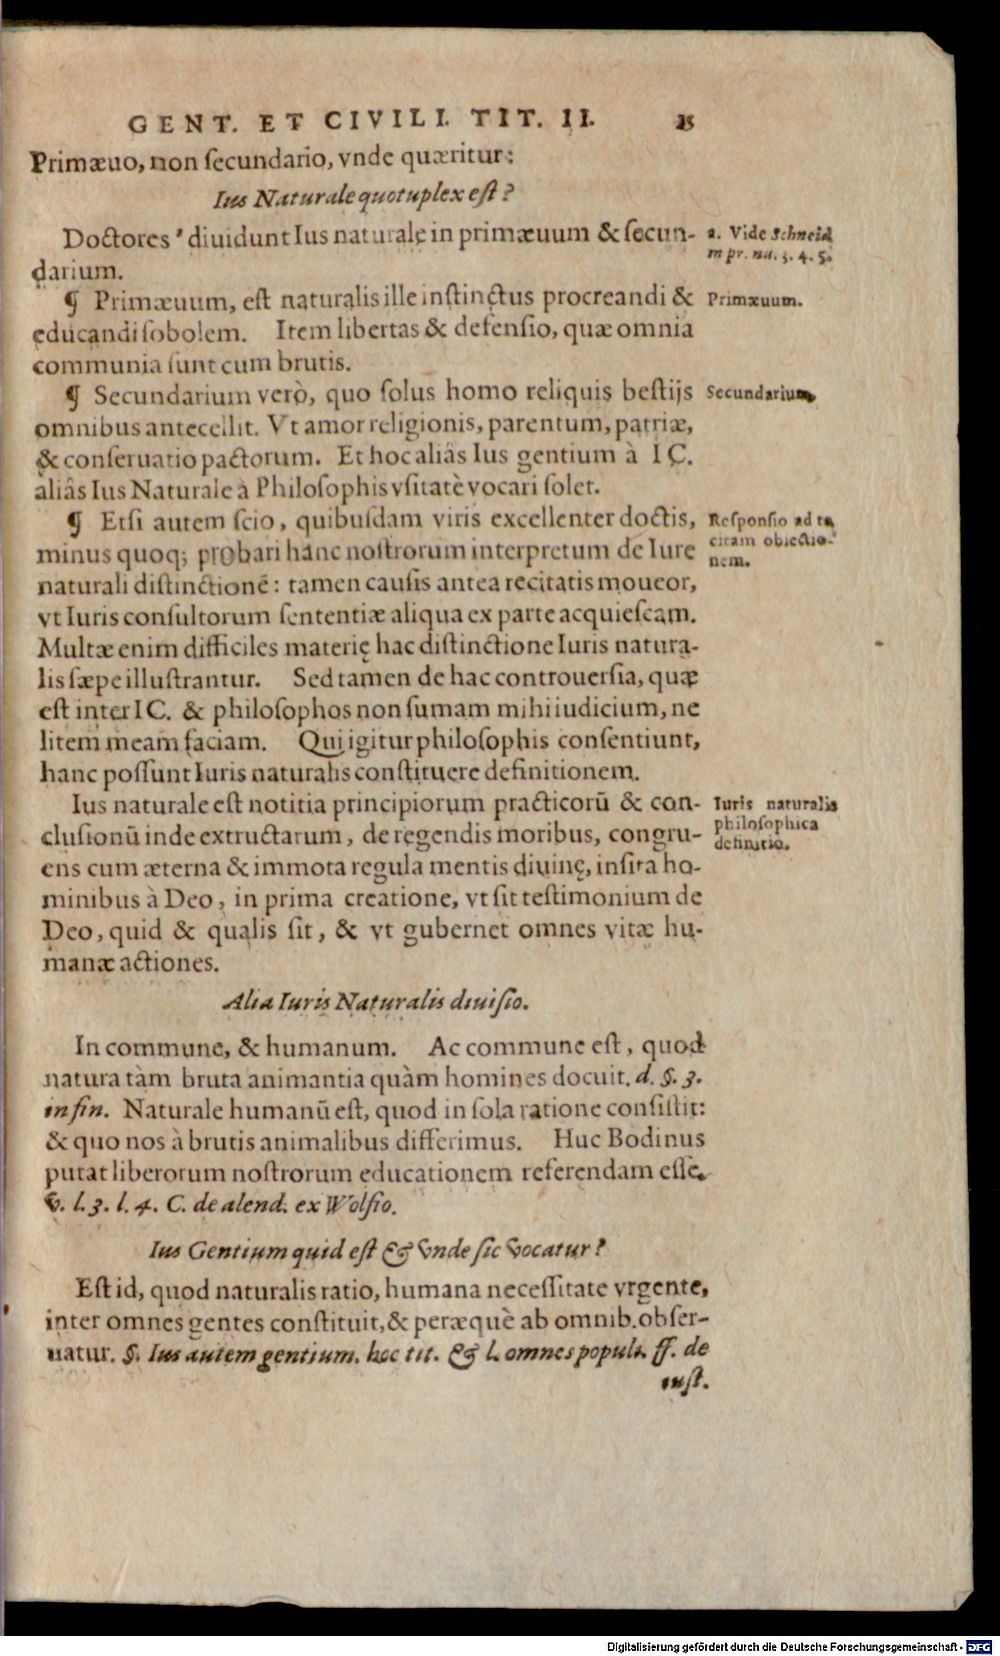 GENT. ET CIVILI. TIT. II. 25
Primæuo, non secundario, vnde quæritur:
Ius Naturale quotuplex est?
Doctores ª diuidunt Ius naturale in primæuum & secun-
darium.
a. Vide Schneid
in pr. nu. 3. 4. 5.
¶ Primæuum, est naturalis ille instinctus procreandi &
educandi sobolem. Item libertas & defensio, quæ omnia
communia sunt cum brutis.
Primæuum.
¶ Secundarium verò, quo solus homo reliquis bestijs
omnibus antecellit. Vt amor religionis, parentum, patriæ,
& conseruatio pactorum. Et hoc aliâs Ius gentium à IC.
aliâs Ius Naturale à Philosophis vsitatè vocari solet.
Secundarium.
¶ Etsi autem scio, quibusdam viris excellenter doctis,
minus quoq; probari hanc nostrorum interpretum de Iure
naturali distinctionē: tamen causis antea recitatis moueor,
vt Iuris consultorum sententiæ aliqua ex parte acquiescam.
Multæ enim difficiles materię hac distinctione Iuris natura-
lis sæpe illustrantur. Sed tamen de hac controuersia, quæ
est inter IC. & philosophos non sumam mihi iudicium, ne
litem meam faciam. Qui igitur philosophis consentiunt,
hanc possunt Iuris naturalis constituere definitionem.
Responsio ad ta
citam obiectio-
nem.
Ius naturale est notitia principiorum practicorū & con-
clusionū inde extructarum, de regendis moribus, congru-
ens cum æterna & immota regula mentis diuinę, insita ho-
minibus à Deo, in prima creatione, vt sit testimonium de
Deo, quid & qualis sit, & vt gubernet omnes vitæ hu-
manæ actiones.
Iuris naturalis
philosophica
definitio.
Alia Iuris Naturalis diuisio.
In commune, & humanum. Ac commune est, quod
natura tàm bruta animantia quàm homines docuit. d. §. 3.
in fin. Naturale humanū est, quod in sola ratione consistit:
& quo nos à brutis animalibus differimus. Huc Bodinus
putat liberorum nostrorum educationem referendam esse.
v. l. 3. l. 4. C. de alend. ex Wolfio.
Ius Gentium quid est & vnde sic vocatur?
Est id, quod naturalis ratio, humana necessitate vrgente,
inter omnes gentes constituit, & peræquè ab omnib. obser-
uatur. §. Ius autem gentium. hoc tit. & l. omnes populi. ff. de
iust.
Digitalisierung gefördert durch die Deutsche Forschungsgemeinschaft - DFG